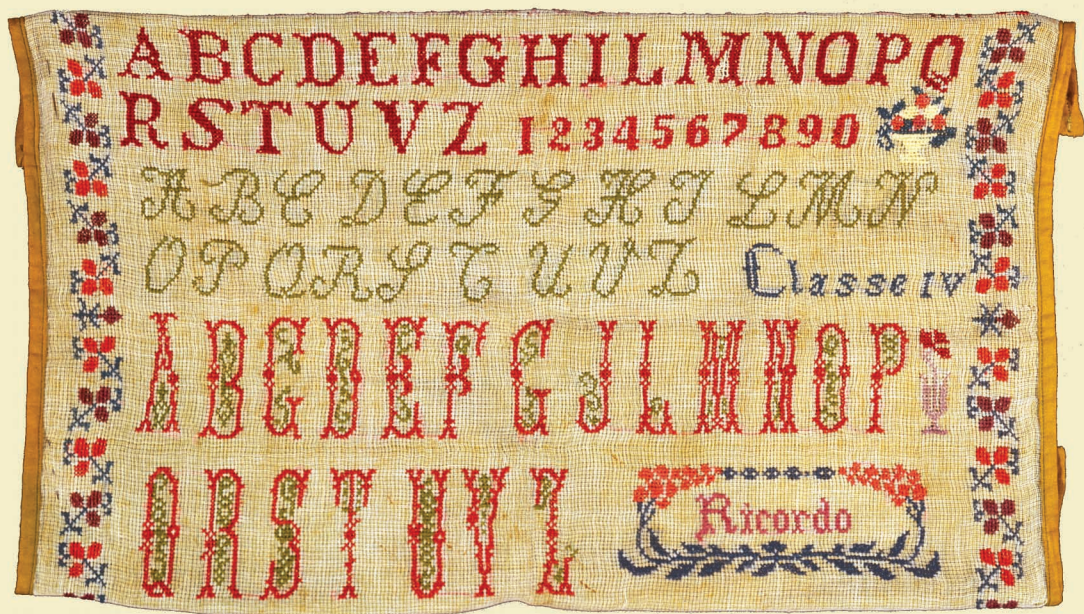 A B C D E F G H I L M N O P Q
R S T U V Z 1 2 3 4 5 6 7 8 9 0
A B C D E F G H I L M N
O P Q R S T U V Z Classe IV
A B C D E F G J L M N O P
Q R S T U V Z Ricordo